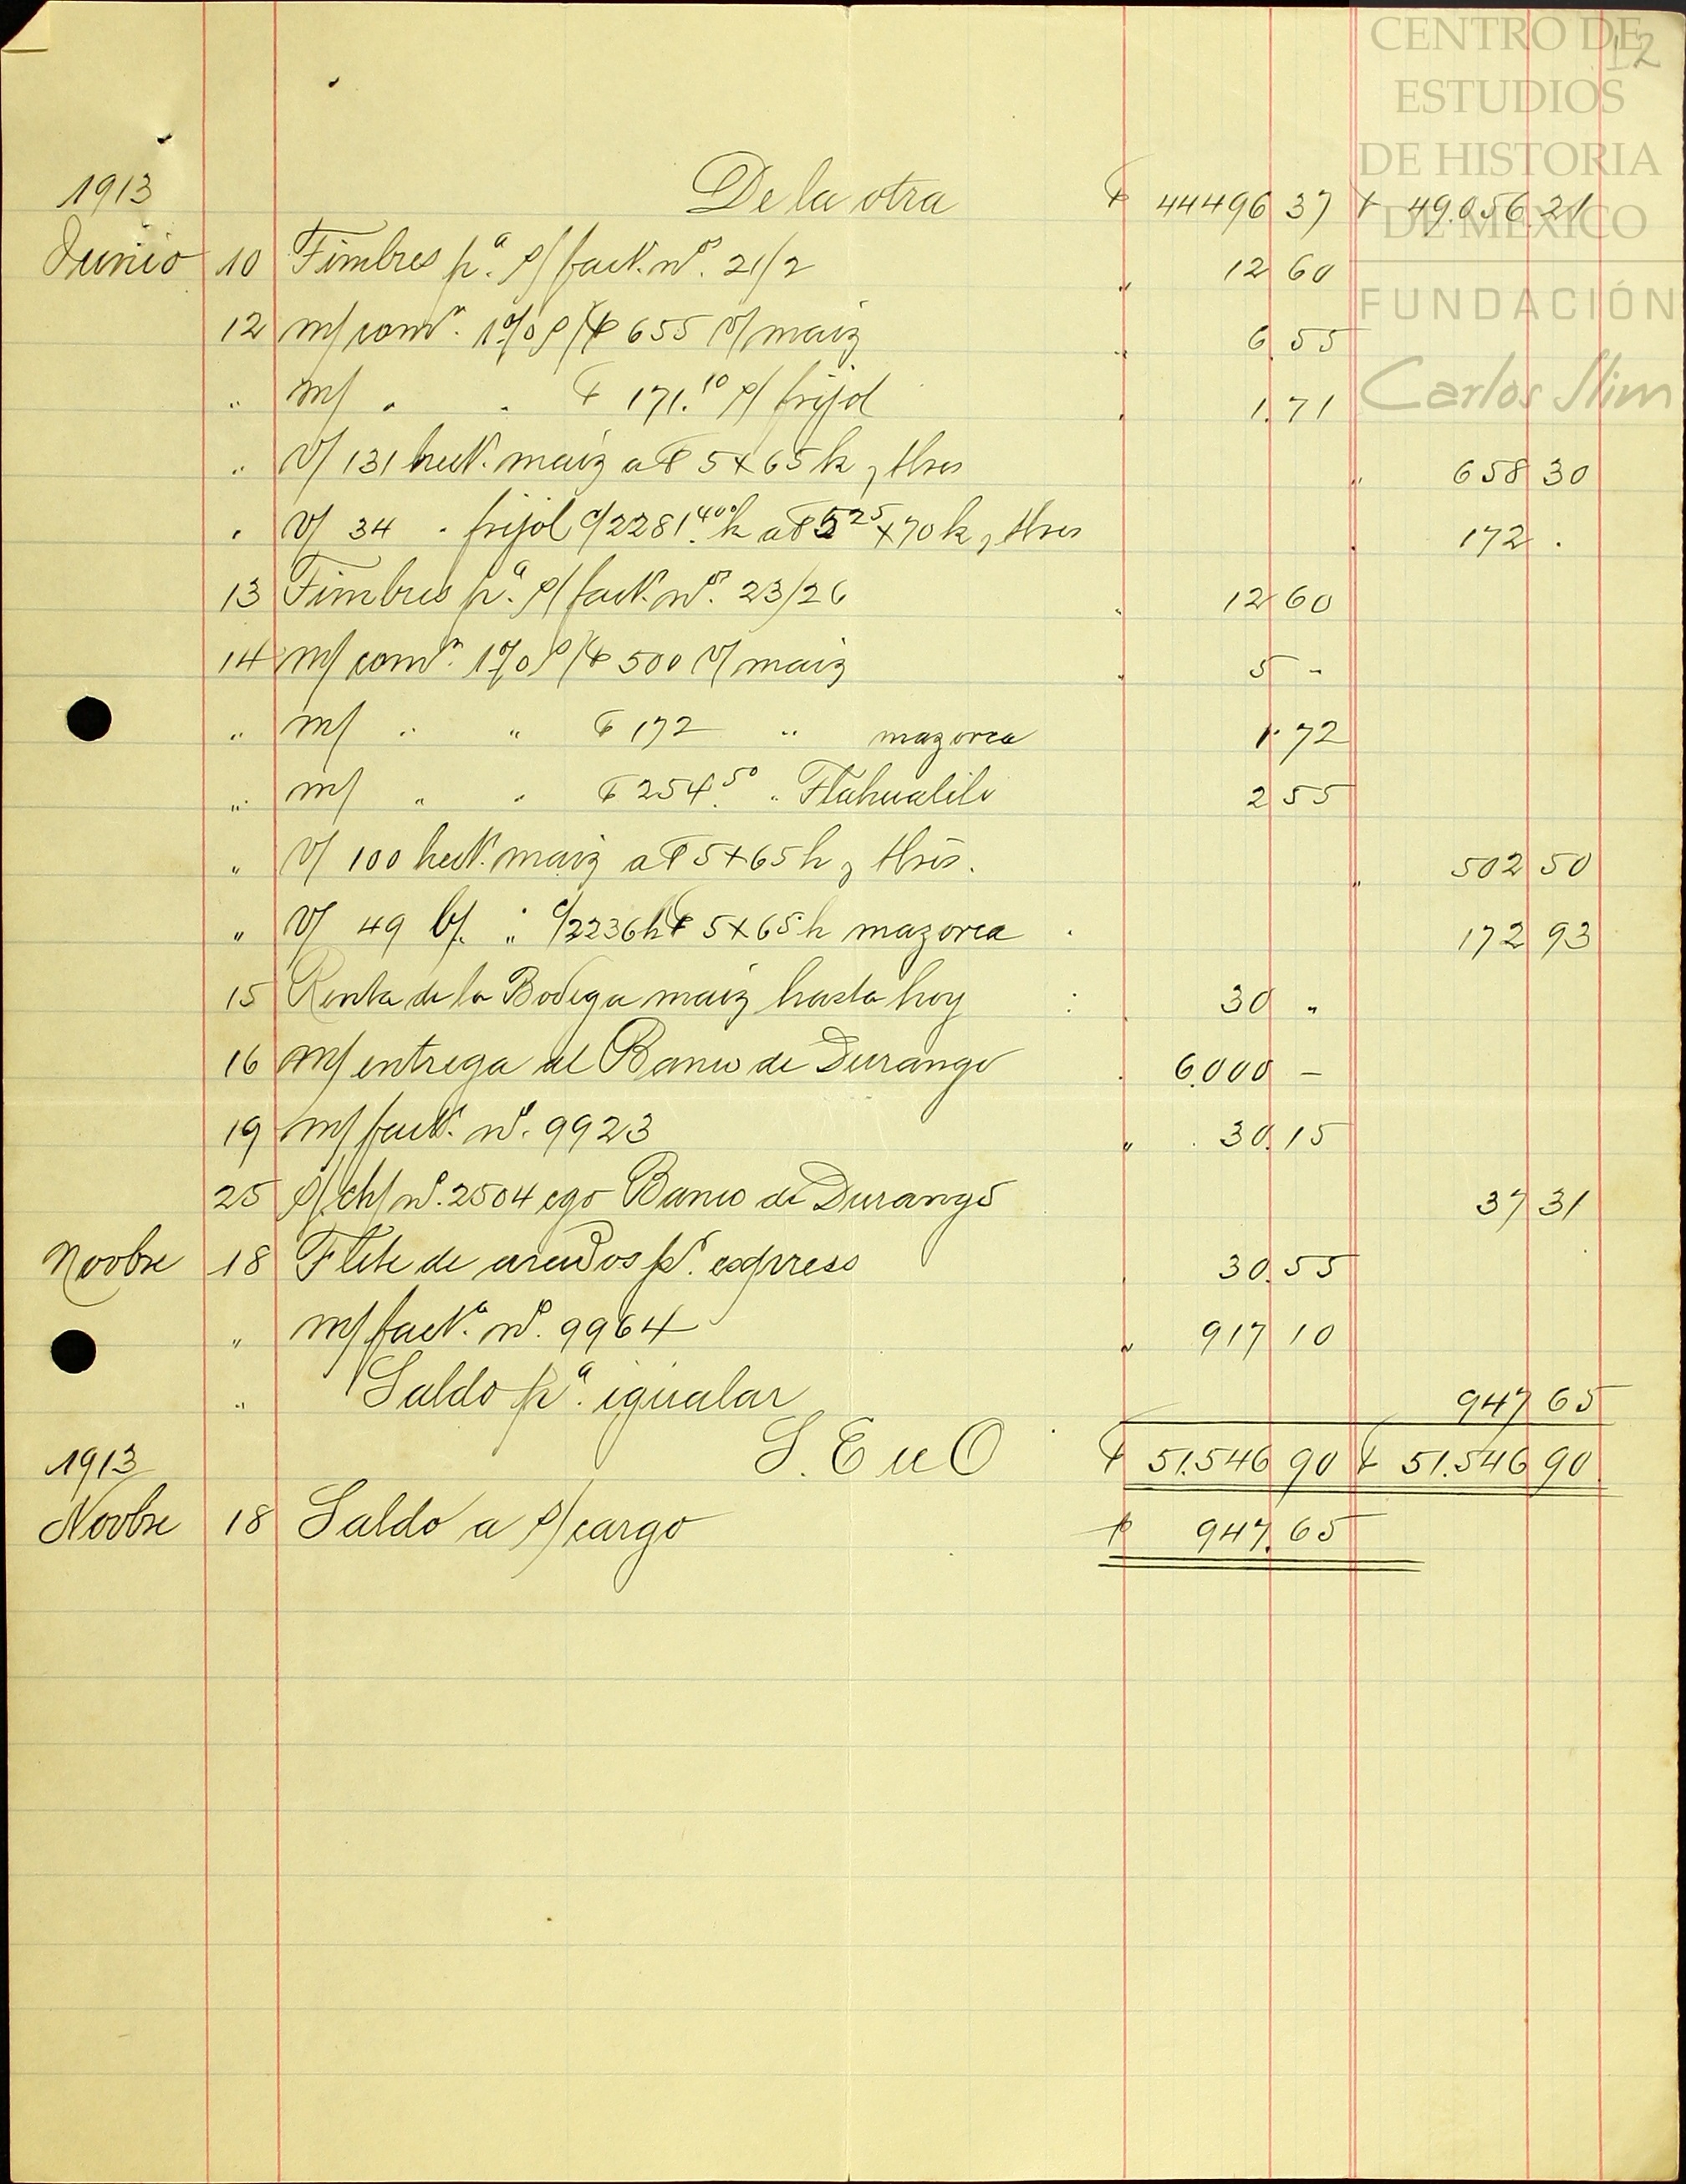 CENTRO DE
ESTUDIOS
DE HISTORIA
DE MÉXICO
FUNDACIÓN
Carlos Slim
12
1913 De la otra $ 44496 37 $ 49.056.21
Junio 10 Timbres pª. s/ fact. nos. 21/2 " 12 60
12 m/ comn. 1% s/ $ 655 v/ maiz " 6.55
" m/ " " $ 171.10 s/ frijol " 1.71
" v/ 131 hect. maiz a $ 5 x 65 k y tbres " 658 30
" v/ 34 " frijol c/ 2281.400 k a $ 5.25 x 70 k y tbres " 172 .
13 Timbres pª. s/ fact. nos. 23/26 " 12 60
14 m/ comn. 1% s/ $ 500 v/ maiz " 5 -
" m/ " " $ 172 " mazorca 1.72
" m/ " " $ 254.50 " Tlahualilo 2 55
" v/ 100 hect. maiz a $ 5 x 65 k y tbres. " 502 50
" v/ 49 b/. " c/ 2236 k $ 5 x 65 k mazorca . 172 93
15 Renta de la Bodega maiz hasta hoy " 30 "
16 m/ entrega al Banco de Durango " 6.000 -
19 m/ fact. nº. 9923 " 30.15
25 s/ ch/ nº. 2504 cgo Banco de Durango 37 31
Novbre 18 Flete de arados pr. express " 30.55
" m/ factª. nº. 9964 " 917 10
" Saldo pª. igualar 947 65
S. E u O $ 51.546 90 $ 51.546 90
1913
Novbre 18 Saldo a s/ cargo $ 947.65